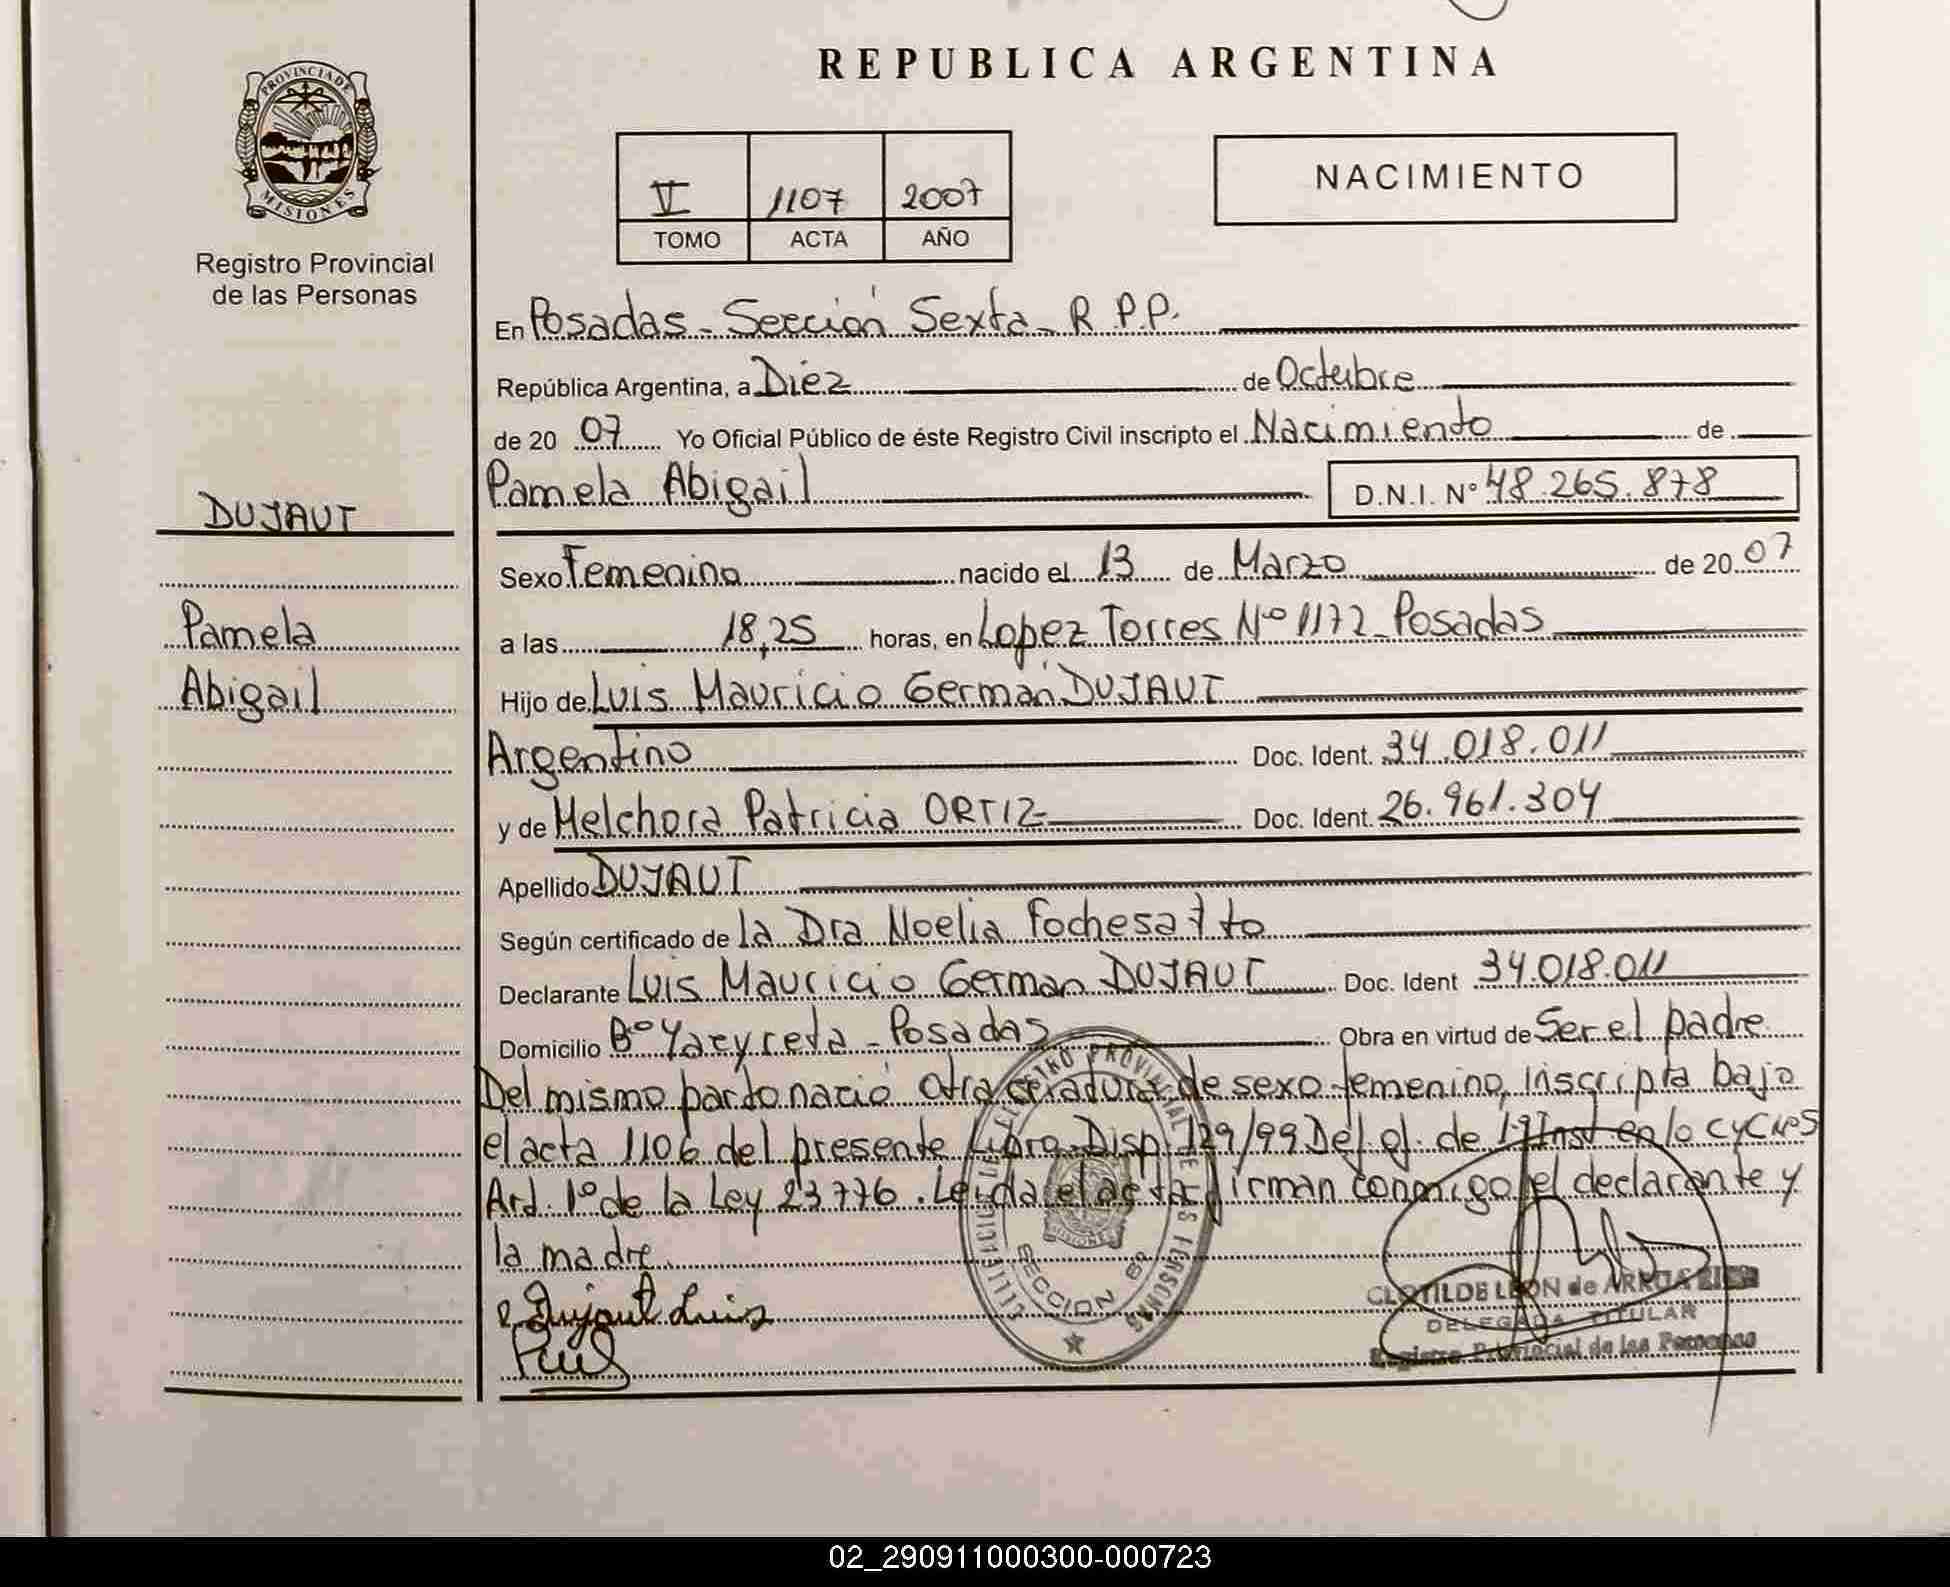 REPUBLICA ARGENTINA
PROVINCIA DE
MISIONES
Registro Provincial
de las Personas
V 1107 2007
TOMO ACTA AÑO
NACIMIENTO
En Posadas - Sección Sexta - R.P.P.
República Argentina, a Diez de Octubre
de 20 07 Yo Oficial Público de éste Registro Civil inscripto el Nacimiento de
Pamela Abigail D.N.I. N° 48.265.878
DUJAUT
Pamela
Abigail
Sexo Femenino nacido el 13 de Marzo de 20 07
a las 18,25 horas, en Lopez Torres Nº 1172 - Posadas
Hijo de Luis Mauricio Germán DUJAUT
Argentino Doc. Ident. 34.018.011
y de Melchora Patricia ORTIZ Doc. Ident. 26.961.304
Apellido DUJAUT
Según certificado de la Dra Noelia Fochesatto
Declarante Luis Mauricio German DUJAUT Doc. Ident 34.018.011
Domicilio Bº Yacyreta - Posadas Obra en virtud de Ser el padre
Del mismo parto nació otra criatura de sexo femenino, inscripta bajo
el acta 1106 del presente Libro. Disp. 129/99 Del of. de 1ª Inst en lo CyC Nº5
Art. 1º de la Ley 23776. Leída el acta firman conmigo el declarante y
la madre.
Dujaut Luis
REGISTRO PROVINCIAL DE LAS PERSONAS
SECCION 6ª
MISIONES
CLOTILDE LEON de
DELEGADA TITULAR
Registro Provincial de las Personas
02_290911000300-000723